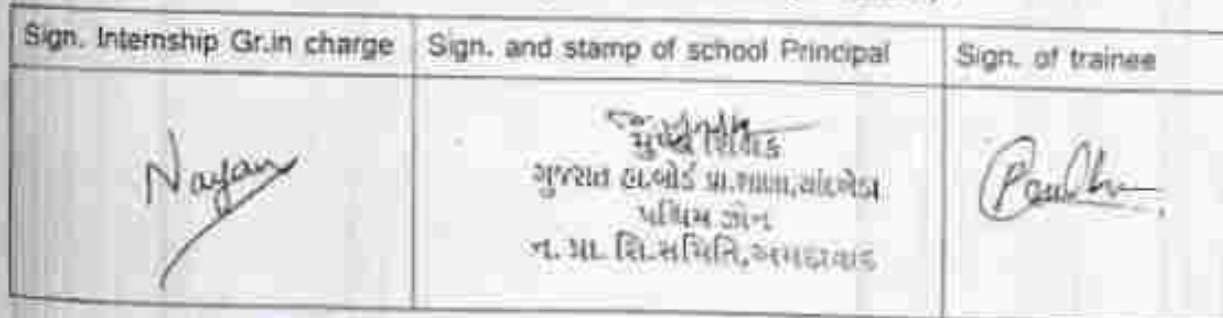 Sign. Internship Gr.in charge
Sign. and stamp of school Principal
Sign. of trainee
Nayan
મુખ્ય શિક્ષક
ગુજરાત હા.બોર્ડ પ્રા.શાળા,ચાંદખેડા
પશ્ચિમ ઝોન
ન. પ્રા. શિ.સમિતિ,અમદાવાદ